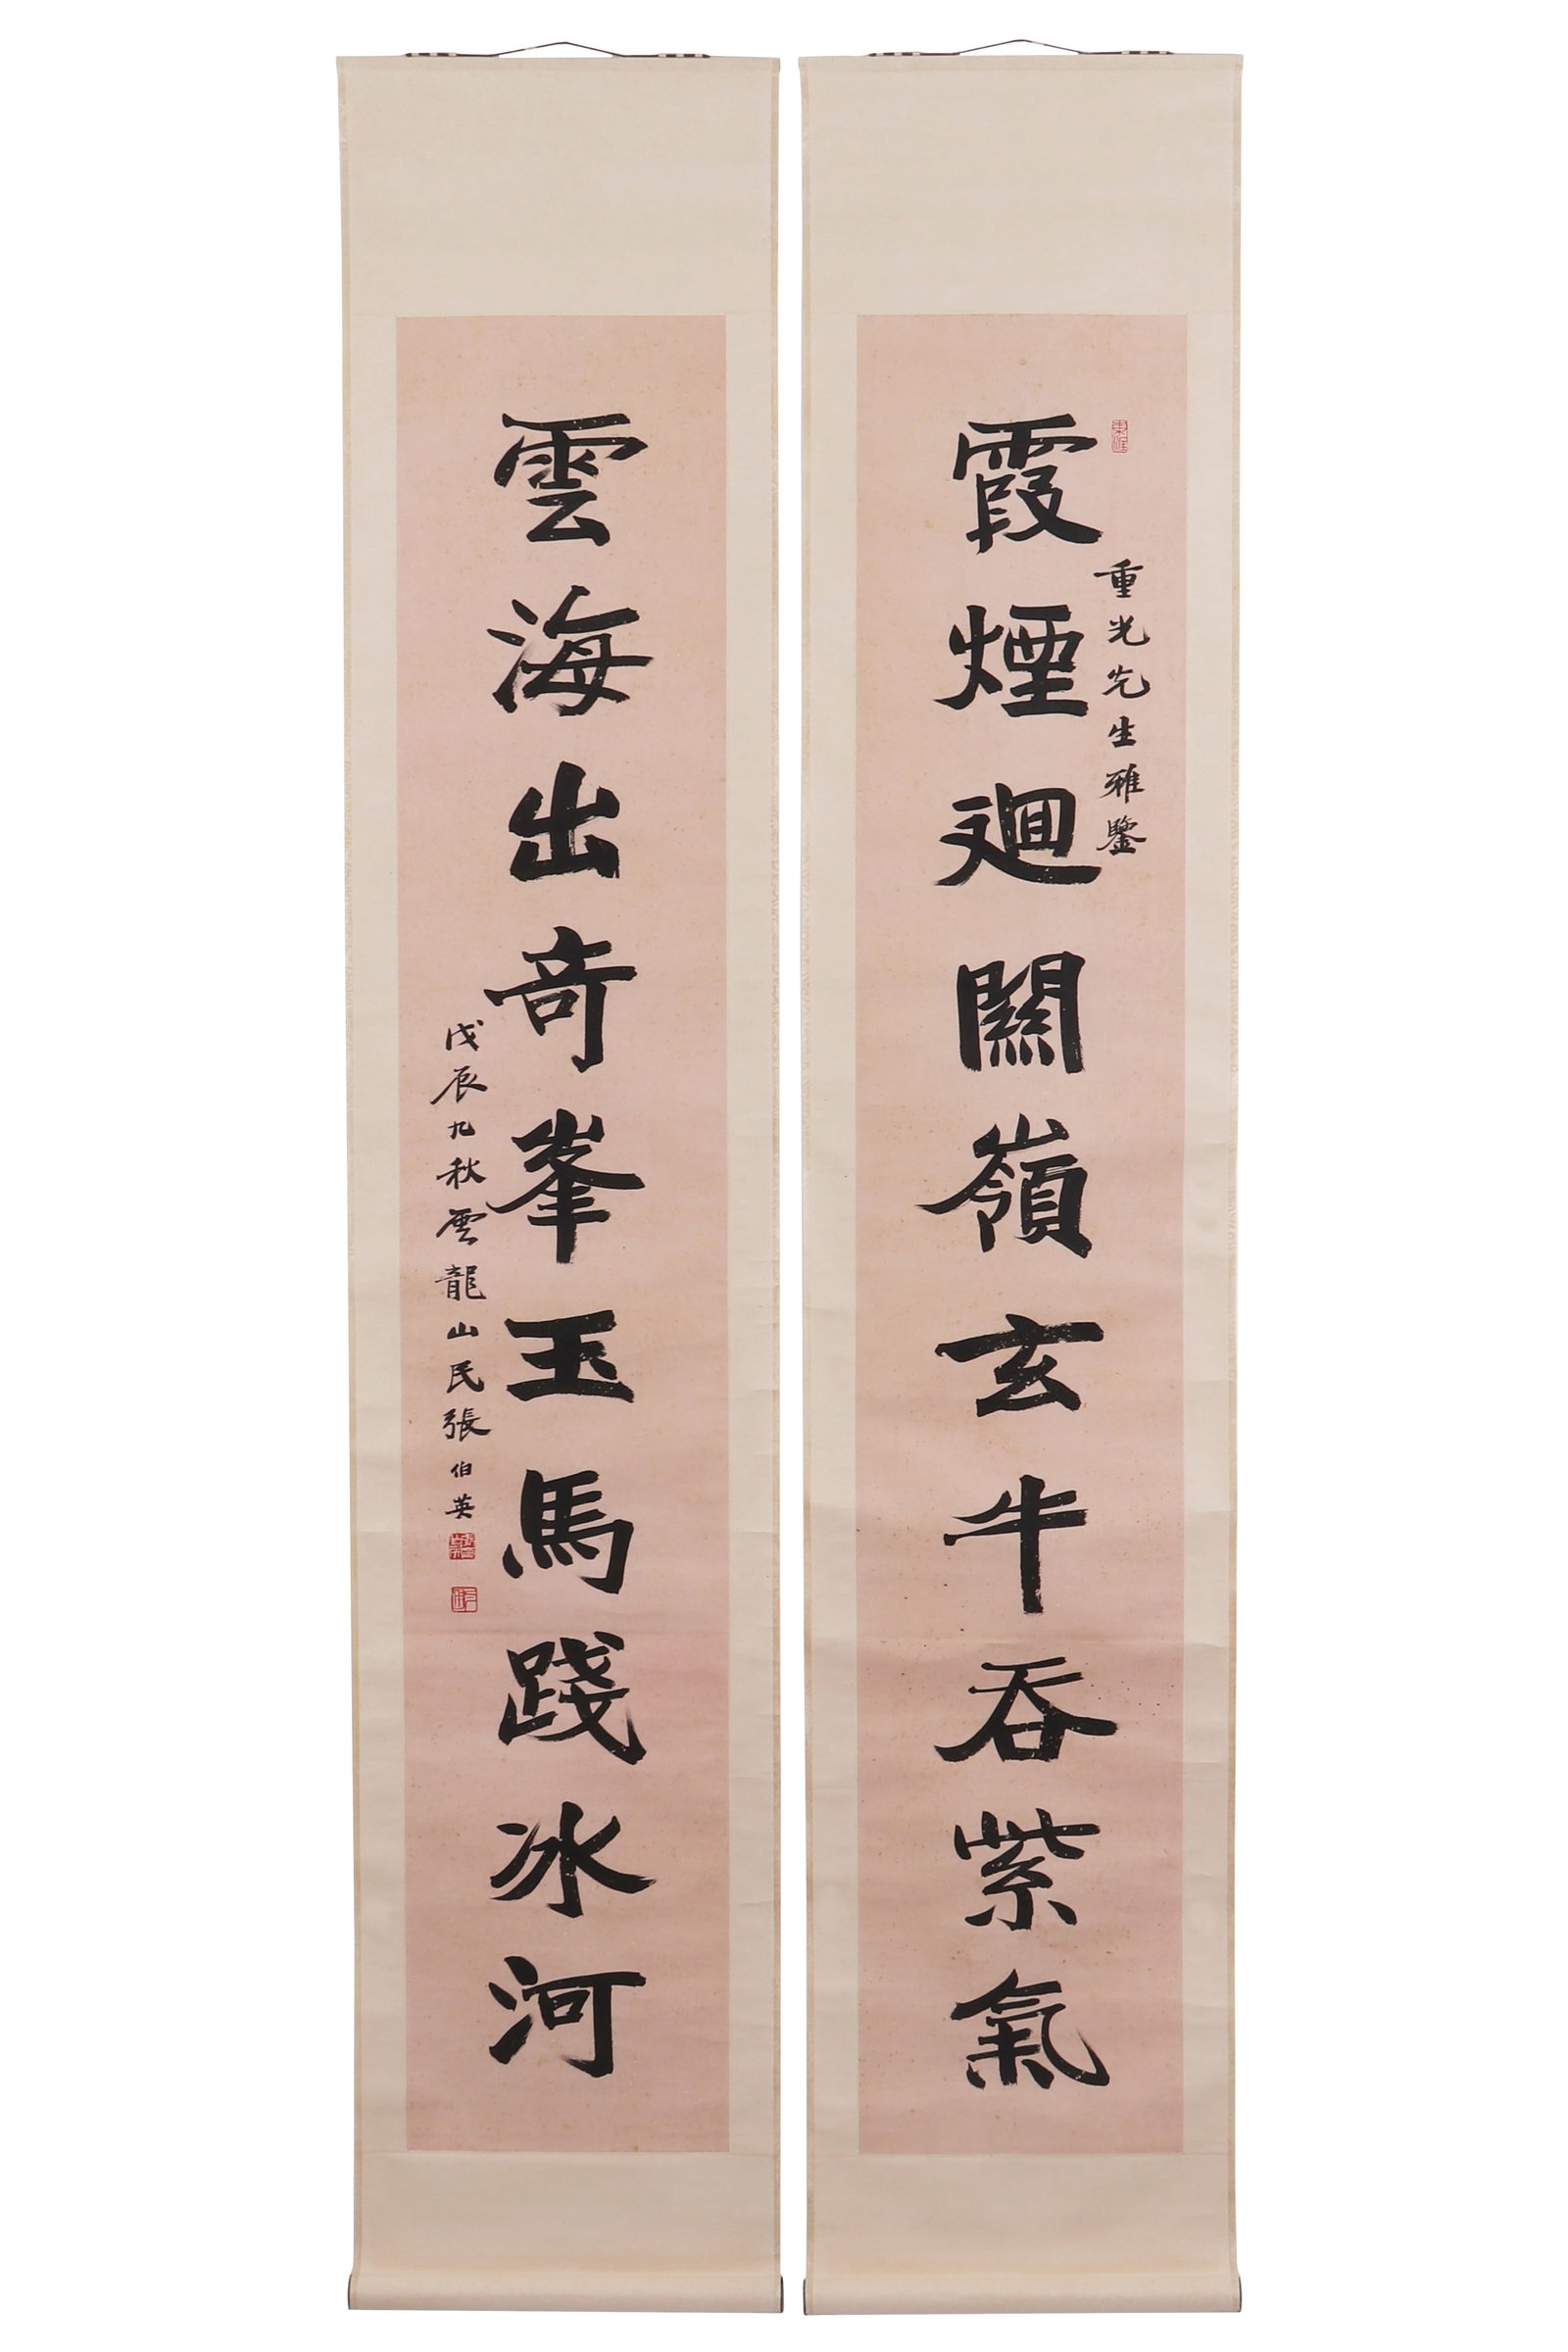 霞煙迴關嶺玄牛吞紫氣
重光先生雅鑒
雲海出奇峯玉馬踐冰河
戊辰九秋雲龍山民張伯英